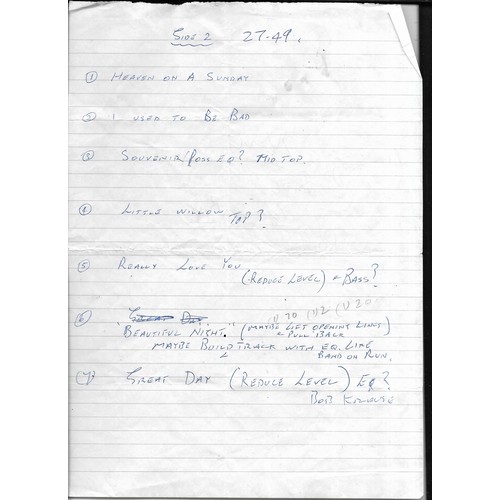 SIDE 2 27-49.
① HEAVEN ON A SUNDAY
② I USED TO BE BAD
③ SOUVENIR POSS EQ? MID TOP.
④ LITTLE WILLOW TOP?
⑤ REALLY LOVE YOU
(REDUCE LEVEL) & BASS?
⑥ GREAT DAY
"BEAUTIFUL NIGHT." (MAYBE LIFT OPENING LINES)
& PULL BACK
MAYBE BUILD TRACK WITH EQ. LIKE
BAND ON RUN.
⑦ GREAT DAY (REDUCE LEVEL) EQ?
BOB